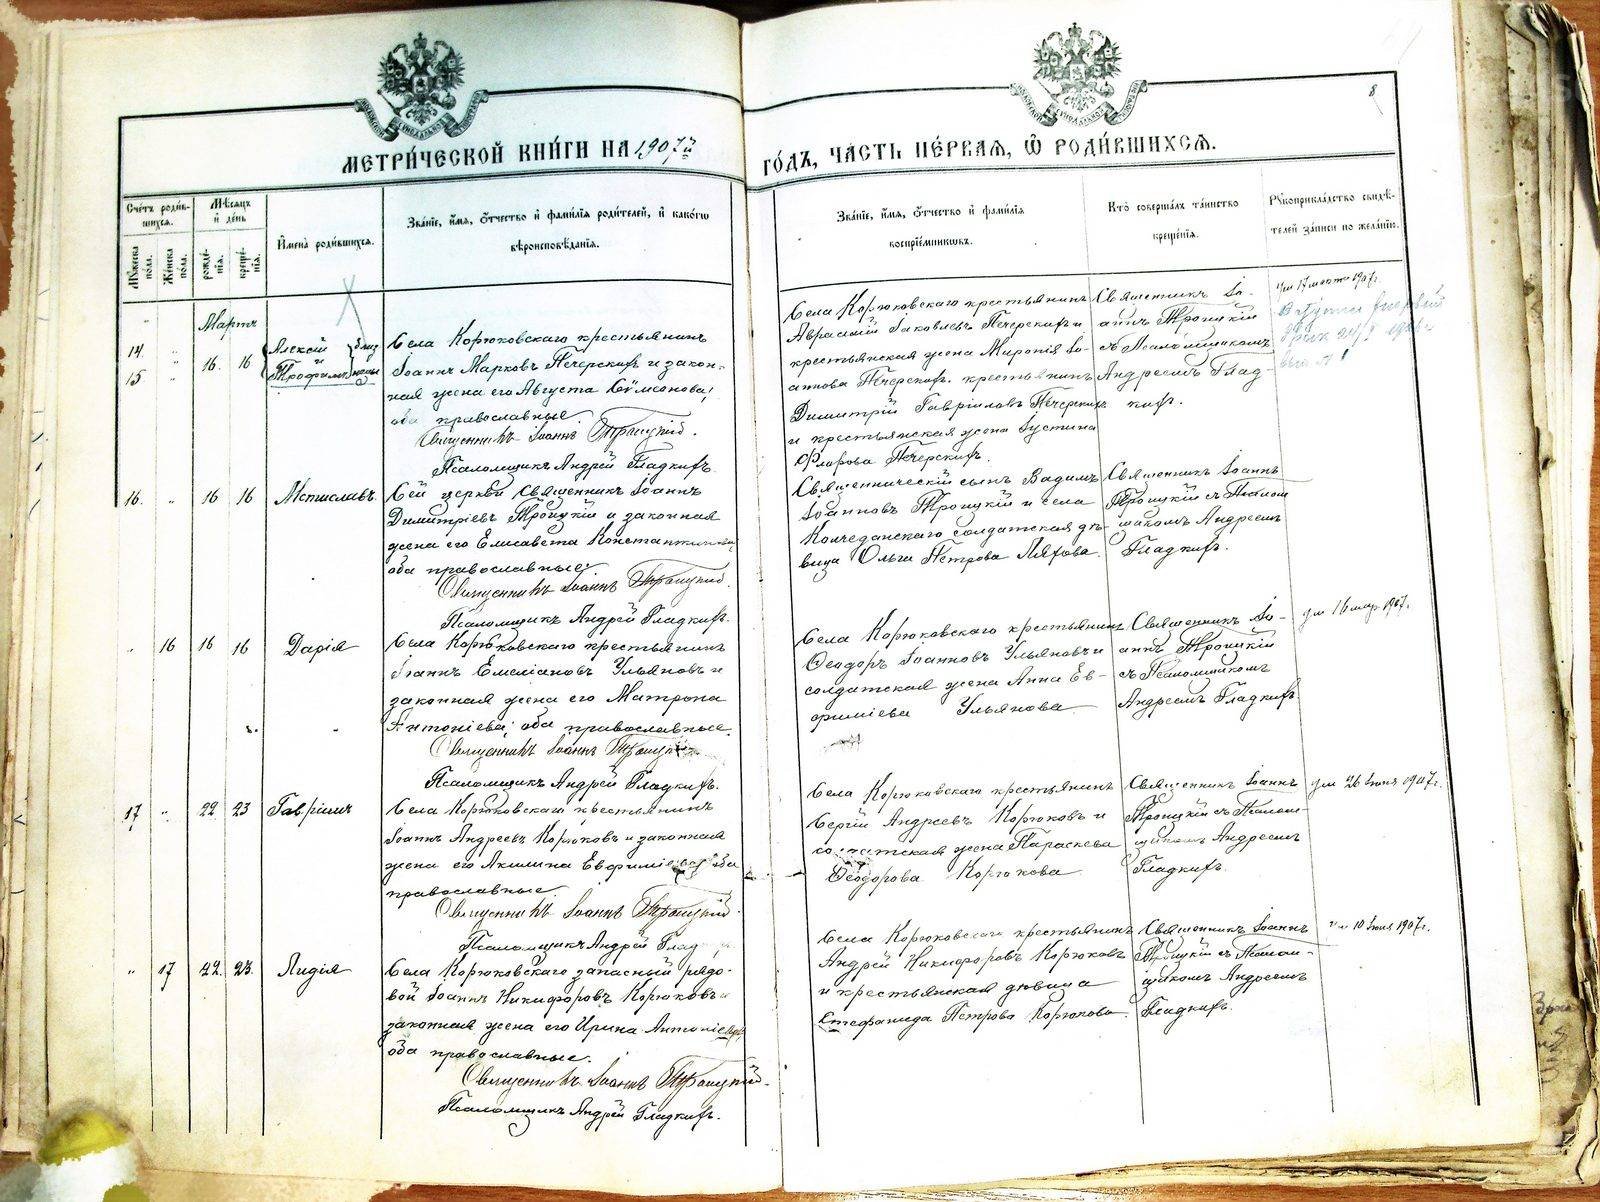 МЕТРИ́ЧЕСКОЙ КНИ́ГИ НА 1907й
ГО́ДЪ, ЧА́СТЬ ПЕ́РВАЯ, Ѽ РОДИ́ВШИХСЯ.
8
Сче́тъ роди́в-
шихся.
Мѣ́сяцъ
и де́нь
Му́жеска
по́ла.
Же́нска
по́ла.
рожде́-
нія.
креще́-
нія.
Имена́ роди́вшихся.
Зва́ніе, и́мя, о́тчество и фами́лія роди́телей, и како́гѡ
вѣроисповѣ́данія.
Зва́ніе, и́мя, о́тчество и фами́лія
воспріе́мникѡвъ.
Кто̀ соверша́лъ та́инство
креще́нія.
Рукоприкла́дство свидѣ́-
телей за́писи по жела́нію.
Мартъ
14. 15. 16. 16 Алексій и Трофимъ близнецы
Села Корюковскаго крестьянинъ
Іоаннъ Марковъ Печерскихъ и закон-
ная жена его Августа
оба православные
Священникъ Іоаннъ Троицкій.
Псаломщикъ Андрей Гладкихъ.
Села Корюковскаго крестьянинъ
Авраамій Іаковлевъ Печерскихъ и
крестьянская жена Миропія Іо-
аннова Печерскихъ. крестьянинъ
Димитрій Гавріиловъ Печерскихъ
и крестьянская жена Іустина
Флорова Печерскихъ.
Священникъ Іо-
аннъ Троицкій
съ Псаломщикомъ
Андреемъ Глад-
кихъ.
17 марта 1907г.
16. 16 16 Мстиславъ.
Сей церкви Священникъ Іоаннъ
Димитріевъ Троицкій и законная
жена его Елисавета Константинова,
оба православные
Священникъ Іоаннъ Троицкій.
Псаломщикъ Андрей Гладкихъ.
Священническій сынъ Вадимъ
Іоанновъ Троицкій и села
Колчеданскаго солдатская дѣ-
вица Ольга Петрова Ляхова.
Священникъ Іоаннъ
Троицкій съ Псалом-
щикомъ Андреемъ
Гладкихъ.
16 16 16 Дарія
Села Корюковскаго крестьянинъ
Іоаннъ Емеліановъ Ульяновъ и
законная жена его Матрона
Антоніева; оба православные.
Священникъ Іоаннъ Троицкій
Псаломщикъ Андрей Гладкихъ.
Села Корюковскаго крестьянинъ
Ѳеодоръ Іоанновъ Ульяновъ и
солдатская жена Анна Ев-
фиміева Ульянова
Священникъ Іо-
аннъ Троицкій
съ Псаломщикомъ
Андреемъ Гладкихъ
16 мар. 1907г.
17 22 23 Гавріилъ
Села Корюковскаго крестьянинъ
Іоаннъ Андреевъ Корюковъ и законная
жена его Акилина Евфиміева, оба
православные
Священникъ Іоаннъ Троицкій.
Псаломщикъ Андрей Глад
Села Корюковскаго крестьянинъ
Сергій Андреевъ Корюковъ и
солдатская жена Параскева
Ѳеодорова Корюкова.
Священникъ Іоаннъ
Троицкій съ Псалом-
щикомъ Андреемъ
Гладкихъ.
26 Іюня 1907г.
17 22. 23. Лидія
Села Корюковскаго запасный рядо-
вой Іоаннъ Никифоровъ Корюковъ и
законная жена его Ирина Антоніева,
оба православные.
Священникъ Іоаннъ Троицкій.
Псаломщикъ Андрей Гладкихъ.
Села Корюковскаго крестьянинъ
Андрей Никифоровъ Корюковъ
и крестьянская дѣвица
Стефанида Петрова Корюкова.
Священникъ Іоаннъ
Троицкій съ Псалом-
щикомъ Андреемъ
Гладкихъ.
10 Іюня 1907г.